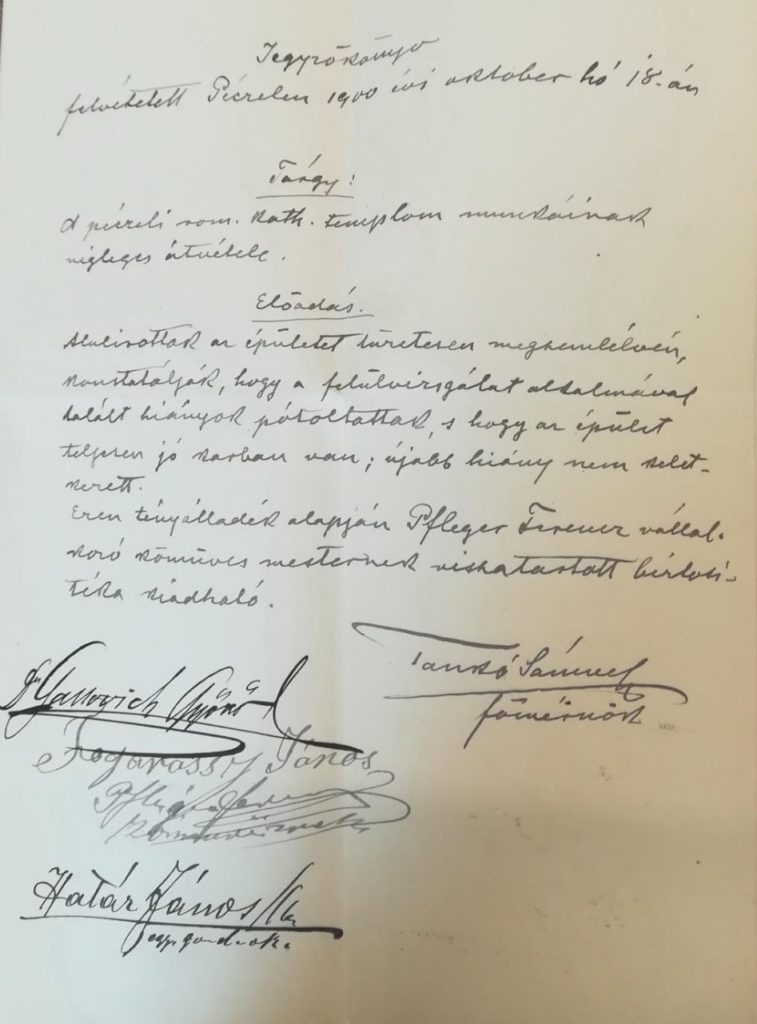 Jegyzőkönyv
felvétetett Péczelen 1900 évi október hó 18.-án
Tárgy:
A péczeli rom. kath. templom munkáinak
végleges átvétele.
Előadás.
Alulirottak az épületet tüzetesen megszemlélvén,
konstatálják, hogy a felülvizsgálat alkalmával
talált hiányok pótoltattak, s hogy az épület
teljesen jó karban van; újabb hiány nem kelet-
kezett.
Ezen tényálladék alapján Pfleger Ferencz vállal-
kozó kőmüves mesternek visszatartott biztosi-
téka kiadható.
Tankó Sámuel
főmérnök
Dr Gallovich Győző
Fogarassy János
Pfleger Ferencz
Határ János
egyh. gondnok.